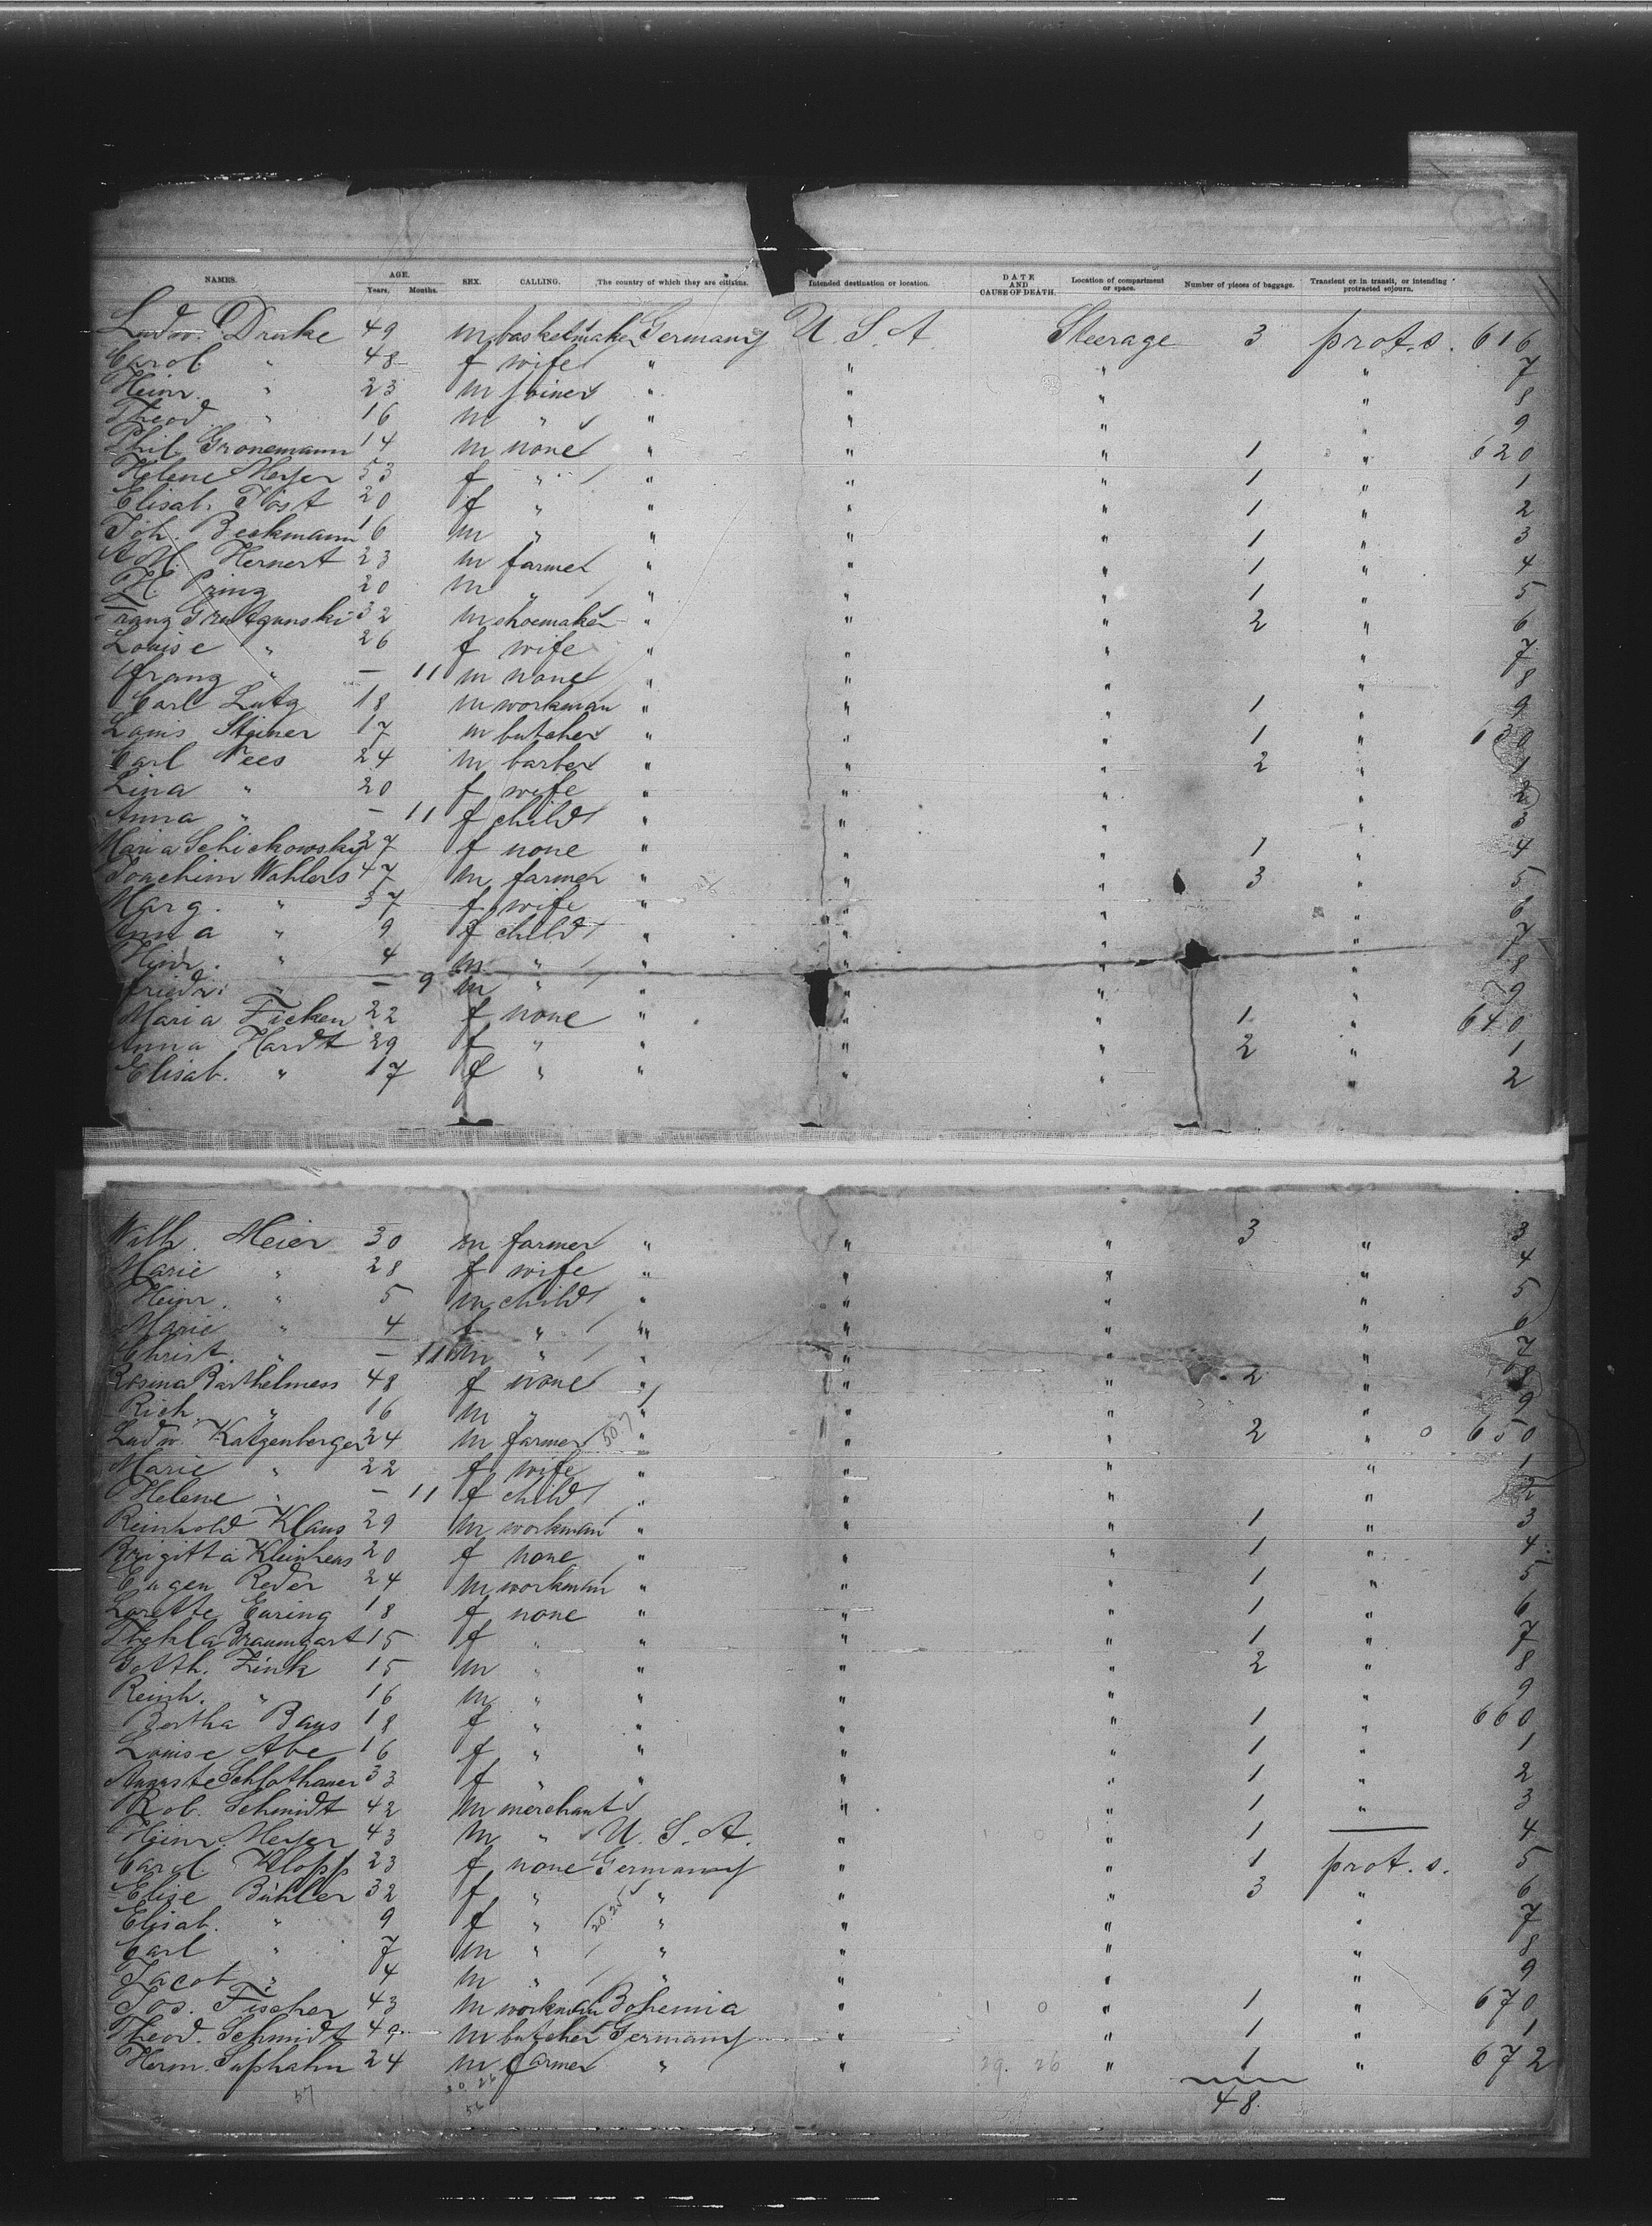 NAMES. AGE. Years. Months. SEX. CALLING. The country of which they are citizens. Intended destination or location. DATE AND CAUSE OF DEATH. Location of compartment or space. Number of pieces of baggage. Transient or in transit, or intending protracted sojourn.
Ludw. Drake 49 m basketmaker Germany U. S. A Steerage 3 prot. s. 616
Carol. " 48 f wife " " " " 7
Heinr. " 23 m joiner " " " " 8
Theod. " 16 m " " " " " 9
Phil. Gronemann 14 m none " " " 1 " 620
Helene Meyer 53 f " " " " 1 " 1
Elisab. Jost 20 f " " " " 1 " 2
Joh. Beekmann 16 m " " " " 1 " 3
A. M. Hernert 23 m farmer " " " 1 " 4
H. Pring 20 m " " " " 1 " 5
Franz 32 m shoemaker " " " 2 " 6
Louise " 26 f wife " " " " 7
Franz " — 11 m none " " " " 8
Carl Lutz 18 m workman " " " 1 " 9
Louis Steiner 17 m butcher " " " 1 " 630
Carl Fees 24 m barber " " " 2 " 1
Lina " 20 f wife " " " " 2
Anna " — 11 f child " " " " 3
Maria Schickowsky 27 f none " " " 1 " 4
Joachim Wahlers 47 m farmer " " " 3 " 5
Marg. " 37 f wife " " " " 6
Anna " 9 f child " " " " 7
Hinr. " 4 m " " " " " 8
Friedr. " — 9 m " " " " " 9
Maria Ficken 22 f none " " " 1 " 640
Anna Hardt 29 f " " " " 2 " 1
Elisab. " 17 f " " " " " 2
Wilh. Meier 30 m farmer " " " 3 " 3
Marie " 28 f wife " " " " 4
Heinr. " 5 m child " " " " 5
Marie " 4 f " " " " " 6
Christ. " — 11 m " " " " " 7
Rosina Barthelmess 48 f none " " " 2 " 8
Rich. " 16 m " " " " " 9
Ludw. Katzenberger 24 m farmer " " " 2 " 650
Marie " 22 f wife " " " " 1
Helene " — 11 f child " " " " 2
Reinhold Klaus 29 m workman " " " 1 " 3
Brigitta Kleinhens 20 f none " " " 1 " 4
Eugen Reder 24 m workman " " " 1 " 5
Lorette Euring 18 f none " " " 1 " 6
Thekla Braumgart 15 f " " " " 1 " 7
Gotth. Zink 15 m " " " " 2 " 8
Reinh. " 16 m " " " " " 9
Bertha Baus 18 f " " " " 1 " 660
Louise Abe 16 f " " " " 1 " 1
Auguste Schlothauer 33 f " " " " 1 " 2
Rob. Schmidt 42 m merchant " " " 1 " 3
Heinr. Meyer 43 m " U. S. A. " " 1 — 4
Carol. Klopp 23 f none Germany " " 1 prot. s. 5
Elise Bühler 32 f " " " " 3 " 6
Elisab. " 9 f " " " " " 7
Carl " 7 m " " " " " 8
Jacob " 4 m " " " " " 9
Jos. Fischer 43 m workman Bohemia " " 1 " 670
Theod. Schmidt 49 m butcher Germany " " 1 " 1
Herm. 24 m farmer " " 29. 26 " 1 " 672
48.